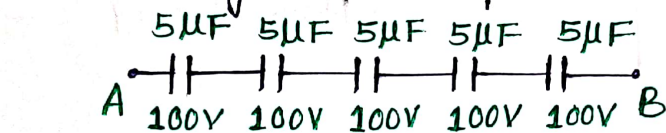 5μF 5μF 5μF 5μF 5μF
A B
100V 100V 100V 100V 100V